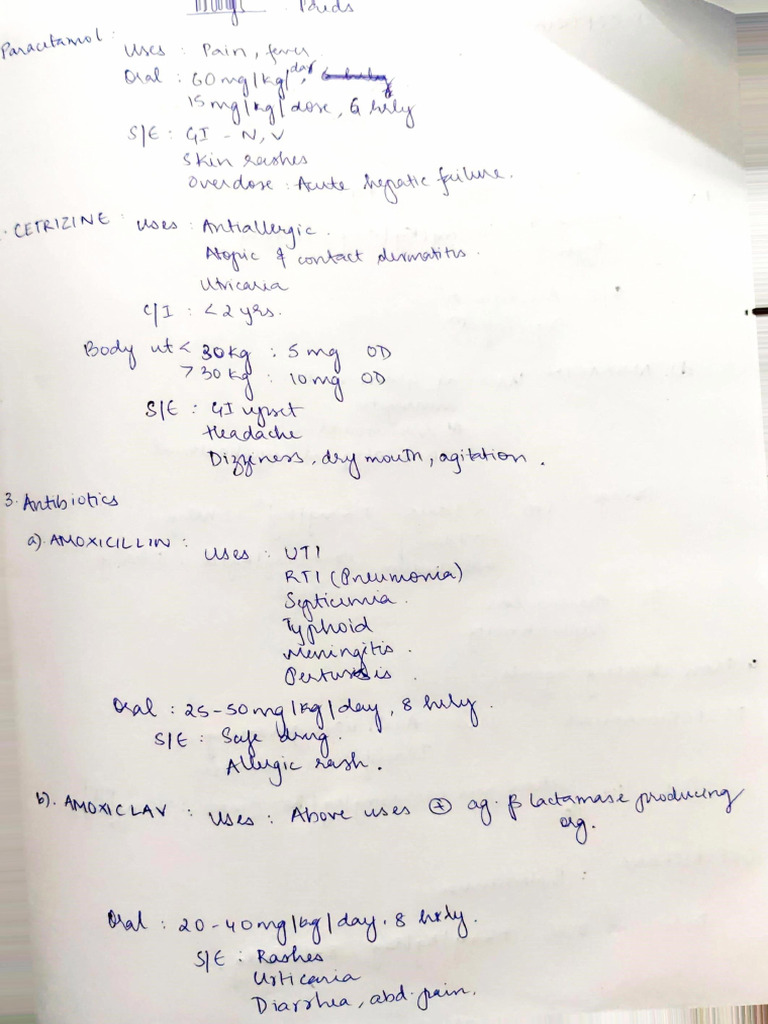 Drugs - Paeds
Paracetamol: Uses : Pain, fever
Oral : 60 mg/kg/day,
15 mg/kg/dose, 6 hrly
S/E : GI - N, V
Skin rashes
Overdose : Acute hepatic failure.
. CETRIZINE : Uses : Antiallergic.
Atopic & contact dermatitis.
Utricaria
C/I : <2 yrs.
Body wt < 30kg : 5 mg OD
> 30 kg : 10 mg OD
S/E : GI upset
Headache
Dizziness, dry mouth, agitation.
3. Antibiotics
a). AMOXICILLIN : Uses : UTI
RTI (Pneumonia)
Septicemia.
Typhoid
Meningitis.
Pertussis.
Oral : 25-50 mg/kg/day, 8 hrly.
S/E : Safe drug.
Allergic rash.
b). AMOXICLAV : Uses : Above uses ⊕ ag. β lactamase producing
org.
Oral : 20-40 mg/kg/day. 8 hrly.
S/E : Rashes
Urticaria
Diarrhea, abd. pain.